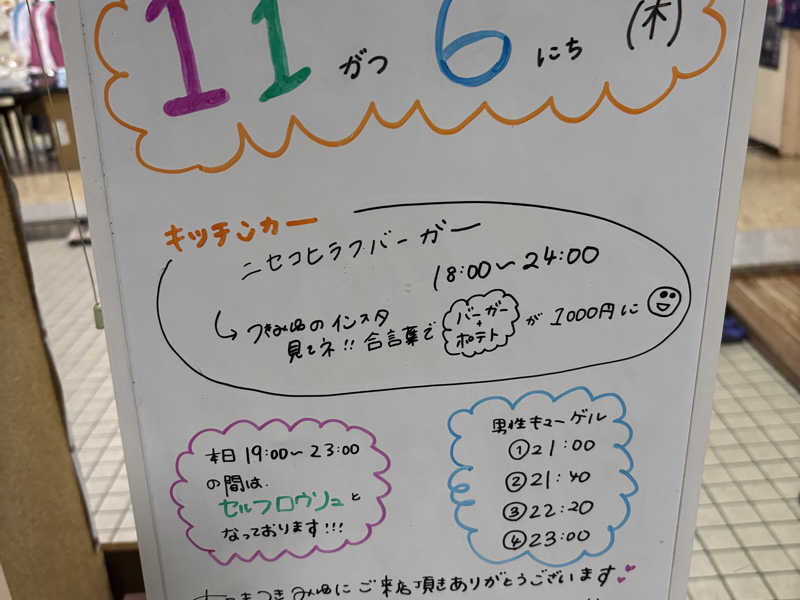 11がつ6にち(木)
キッチンカー
ニセコヒラフバーガー
18:00〜24:00
つきみ湯のインスタ
見てネ!! 合言葉で
バーガー
+
ポテト
が 1000円に
本日 19:00〜23:00
の間は、
セルフロウリュと
なっております!!!
男性キューゲル
①21:00
②21:40
③22:20
④23:00
つきみ湯にご来店頂きありがとうございます